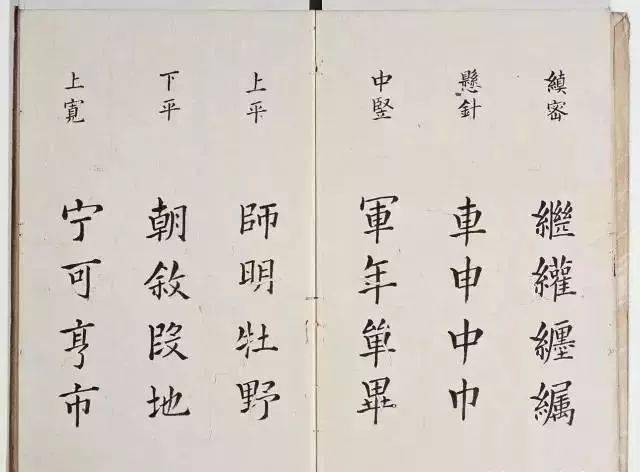 縝密
繼纏纒纊
懸針
車申中巾
中竪
軍年單畢
上平
師明牡野
下平
朝敘段地
上寬
宁可亨市